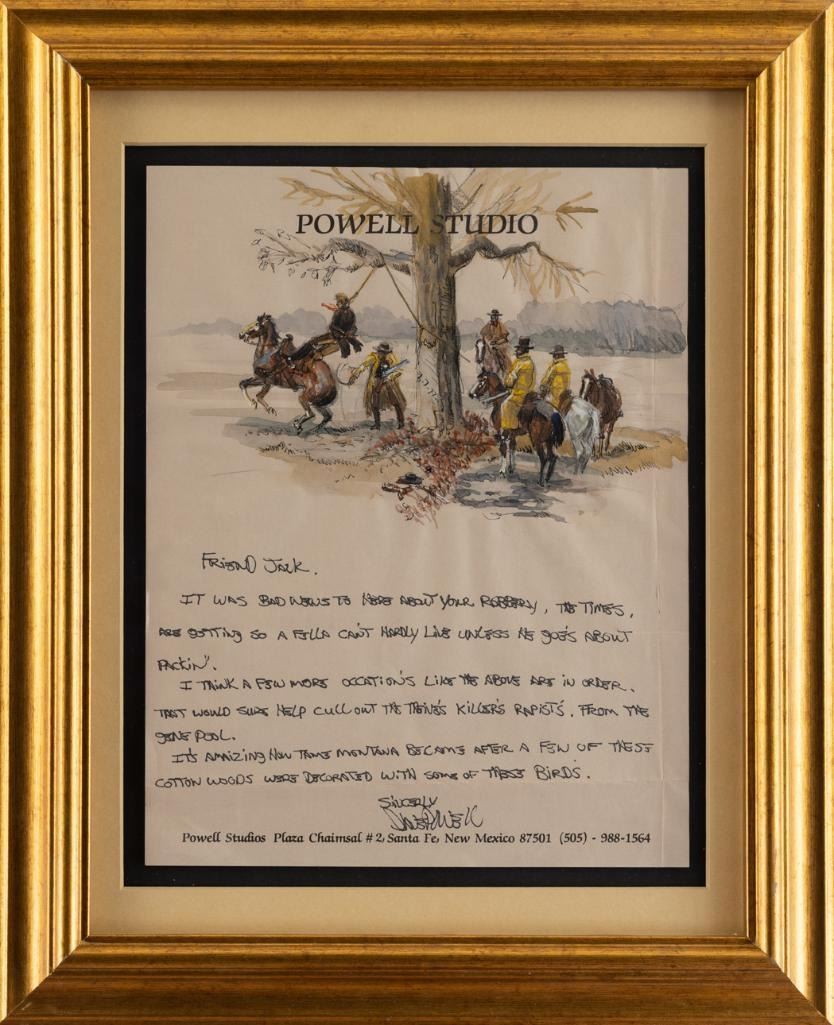 POWELL STUDIO
FRIEND JACK.
IT WAS BAD NEWS TO HERE ABOUT YOUR ROBBERY, THE TIMES,
ARE GETTING SO A FELLA CAN'T HARDLY LIVE UNLESS HE GOE'S ABOUT
PACKIN'.
I THINK A FEW MORE OCCATION'S LIKE THE ABOVE ARE IN ORDER.
THAT WOULD SURE HELP CULL OUT THE THEIVE'S KILLER'S RAPIST'S. FROM THE
GENE POOL.
IT'S AMAIZING HOW TAME MONTANA BECAME AFTER A FEW OF THESE
COTTON WOODS WERE DECORATED WITH SOME OF THESE BIRDS.
SINCERLY
Powell Studios Plaza Chaimsal # 2, Santa Fe, New Mexico 87501 (505) - 988-1564